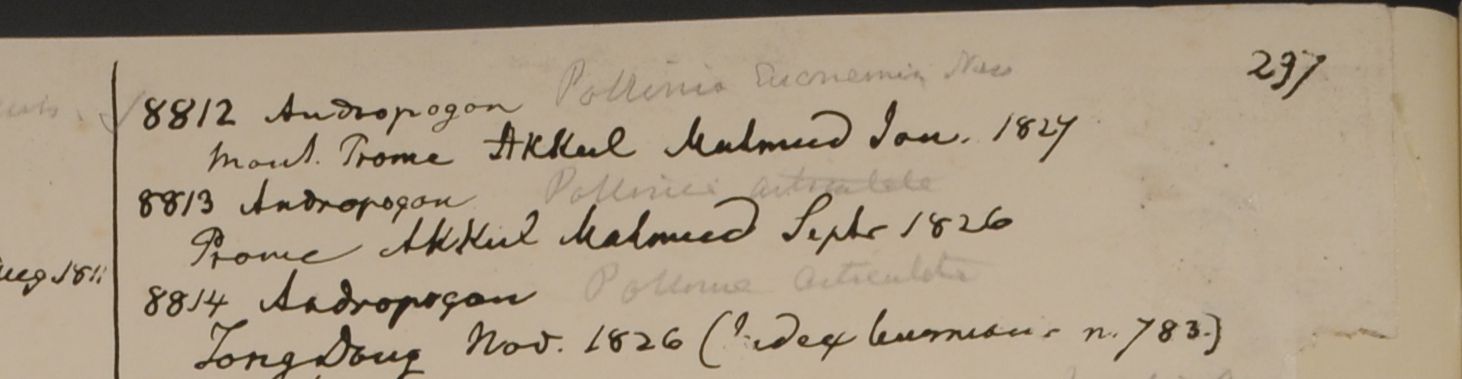 297
8812 Andropogon Pollinia Eucnemis Nees
Mont. Prome AKKul Mahmud Jan. 1827
8813 Andropogon Pollinia articulata
Prome AKKul Mahmud Septr 1826
Aug 181
8814 Andropogon Pollinia articulata
TongDong Nov. 1826 (Index burman. n. 783.)